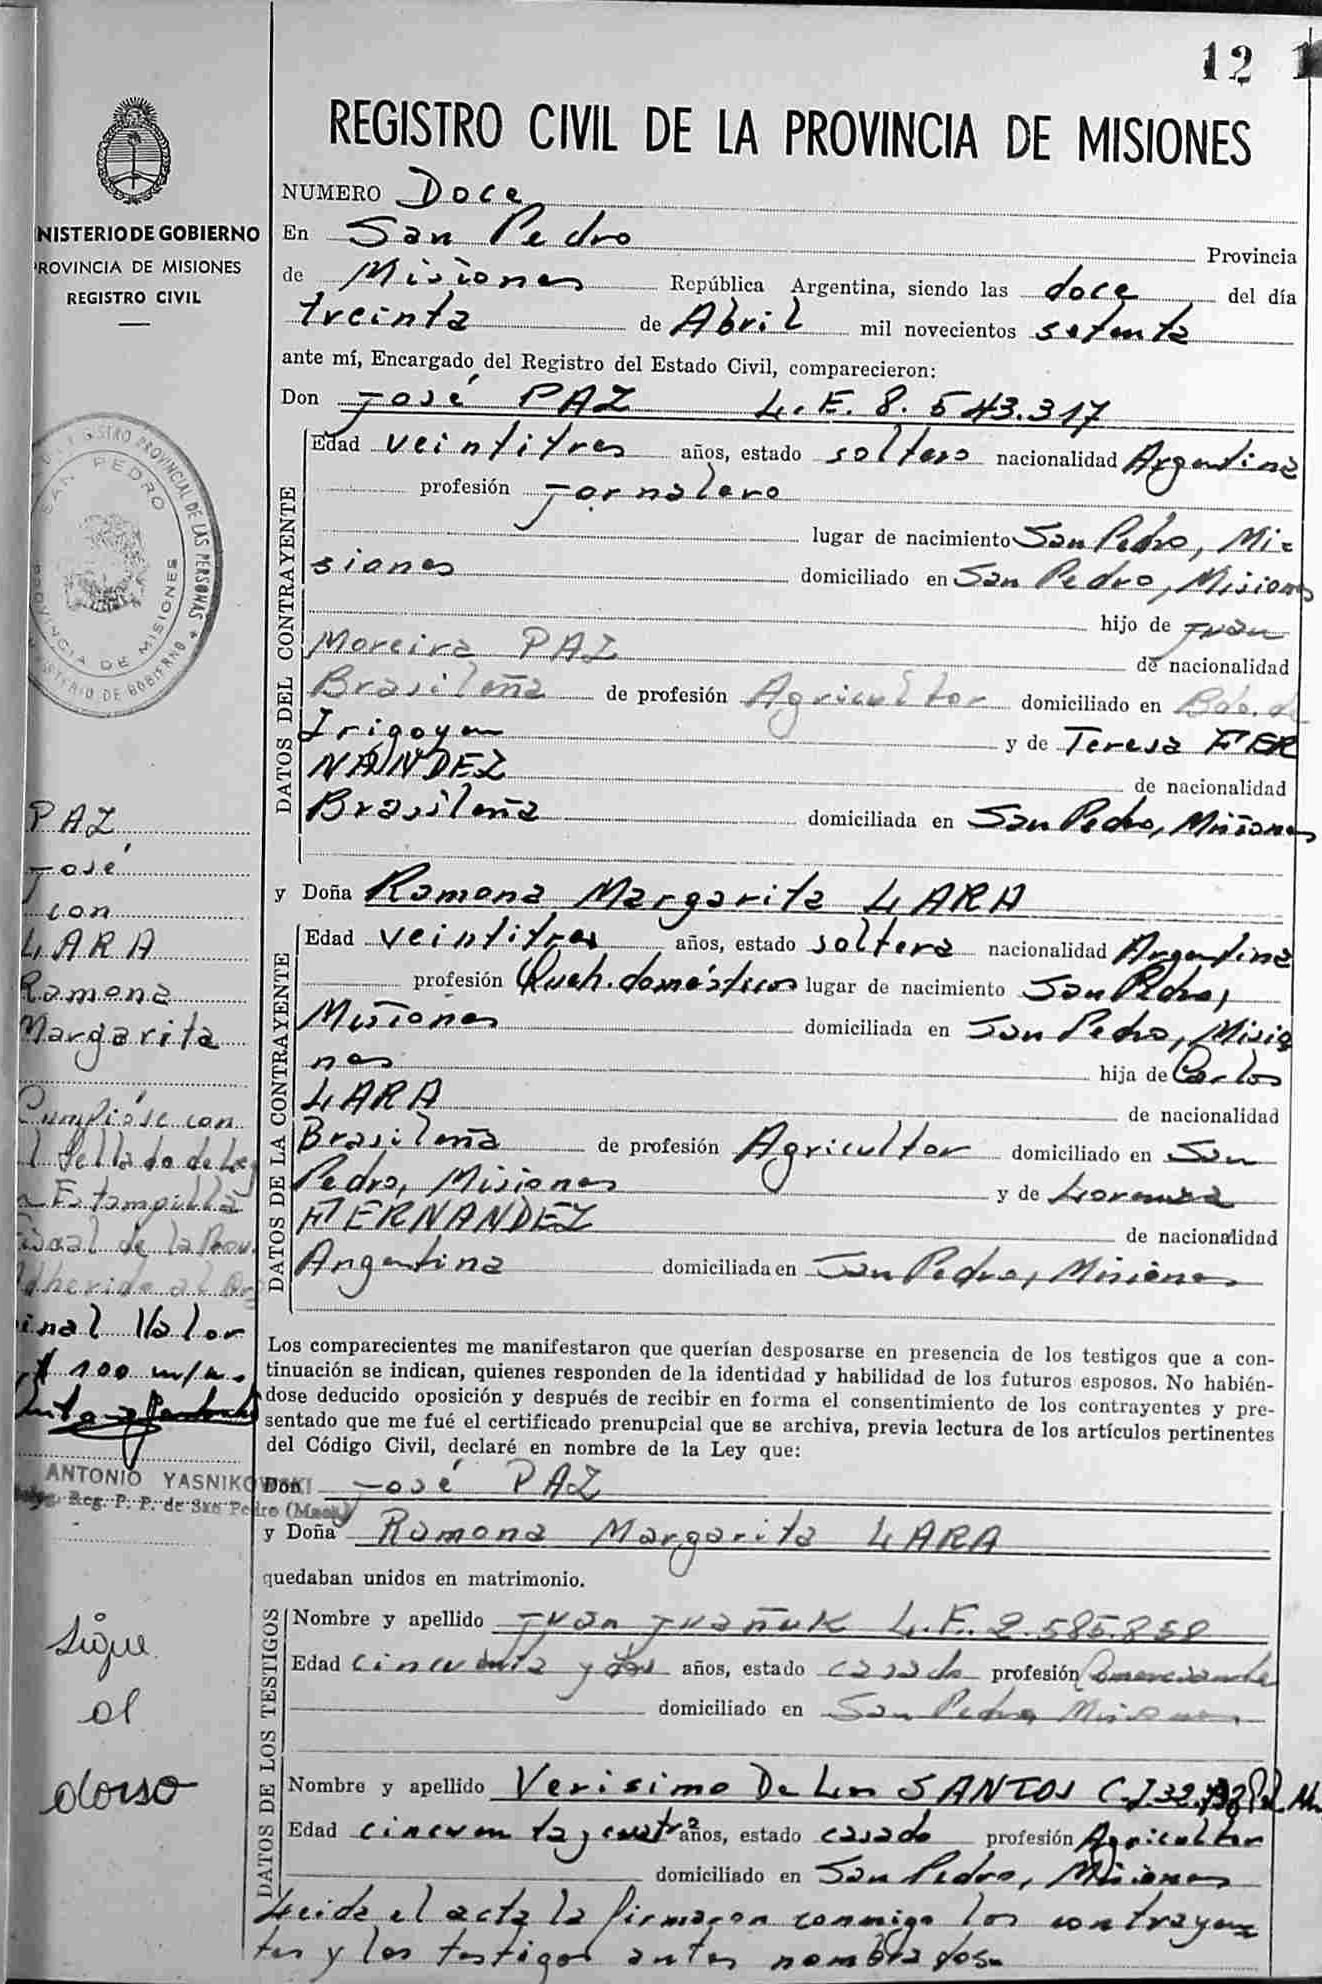 12
REGISTRO CIVIL DE LA PROVINCIA DE MISIONES
NISTERIO DE GOBIERNO
PROVINCIA DE MISIONES
REGISTRO CIVIL
NUMERO Doce
En San Pedro Provincia
de Misiones República Argentina, siendo las doce del día
treinta de Abril mil novecientos setenta
ante mí, Encargado del Registro del Estado Civil, comparecieron:
Don José PAZ L.E. 8.543.317
DATOS DEL CONTRAYENTE
Edad veintitres años, estado soltero nacionalidad Argentina
profesión Jornalero
lugar de nacimiento San Pedro, Mi-
siones domiciliado en San Pedro, Misiones
hijo de Juan
Moreira PAZ de nacionalidad
Brasileña de profesión Agricultor domiciliado en Bdo. de
Irigoyen y de Teresa FER
NANDEZ de nacionalidad
Brasileña domiciliada en San Pedro, Misiones
REGISTRO PROVINCIAL DE LAS PERSONAS
SAN PEDRO
PROVINCIA DE MISIONES
MINISTERIO DE GOBIERNO
PAZ
José
con
LARA
Ramona
Margarita
Cumplióse con
l Sellado de Ley
Estampilla
de la Prov.
dherida al
inal Valor
$ 100 m/n.
ANTONIO YASNIKOWSKI
Reg. P. P. de San Pedro (Mnes)
Sigue
al
dorso
y Doña Ramona Margarita LARA
DATOS DE LA CONTRAYENTE
Edad veintitres años, estado soltera nacionalidad Argentina
profesión Queh. domésticos lugar de nacimiento San Pedro,
Misiones domiciliada en San Pedro, Misio
nes hija de Carlos
LARA de nacionalidad
Brasileña de profesión Agricultor domiciliado en San
Pedro, Misiones y de Lorenza
FERNANDEZ de nacionalidad
Argentina domiciliada en San Pedro, Misiones
Los comparecientes me manifestaron que querían desposarse en presencia de los testigos que a con-
tinuación se indican, quienes responden de la identidad y habilidad de los futuros esposos. No habién-
dose deducido oposición y después de recibir en forma el consentimiento de los contrayentes y pre-
sentado que me fué el certificado prenupcial que se archiva, previa lectura de los artículos pertinentes
del Código Civil, declaré en nombre de la Ley que:
Don José PAZ
y Doña Ramona Margarita LARA
quedaban unidos en matrimonio.
DATOS DE LOS TESTIGOS
Nombre y apellido Juan Juañuk L.E. 2.585.858
Edad cincuenta y dos años, estado casado profesión Comerciante
domiciliado en San Pedro Misiones
Nombre y apellido Verisimo De Los SANTOS C.I.
Edad cincuenta y cuatro años, estado casado profesión Agricultor
domiciliado en San Pedro, Misiones
Leida el acta la firmaron conmigo los contrayen
tes y los testigos antes nombrados.